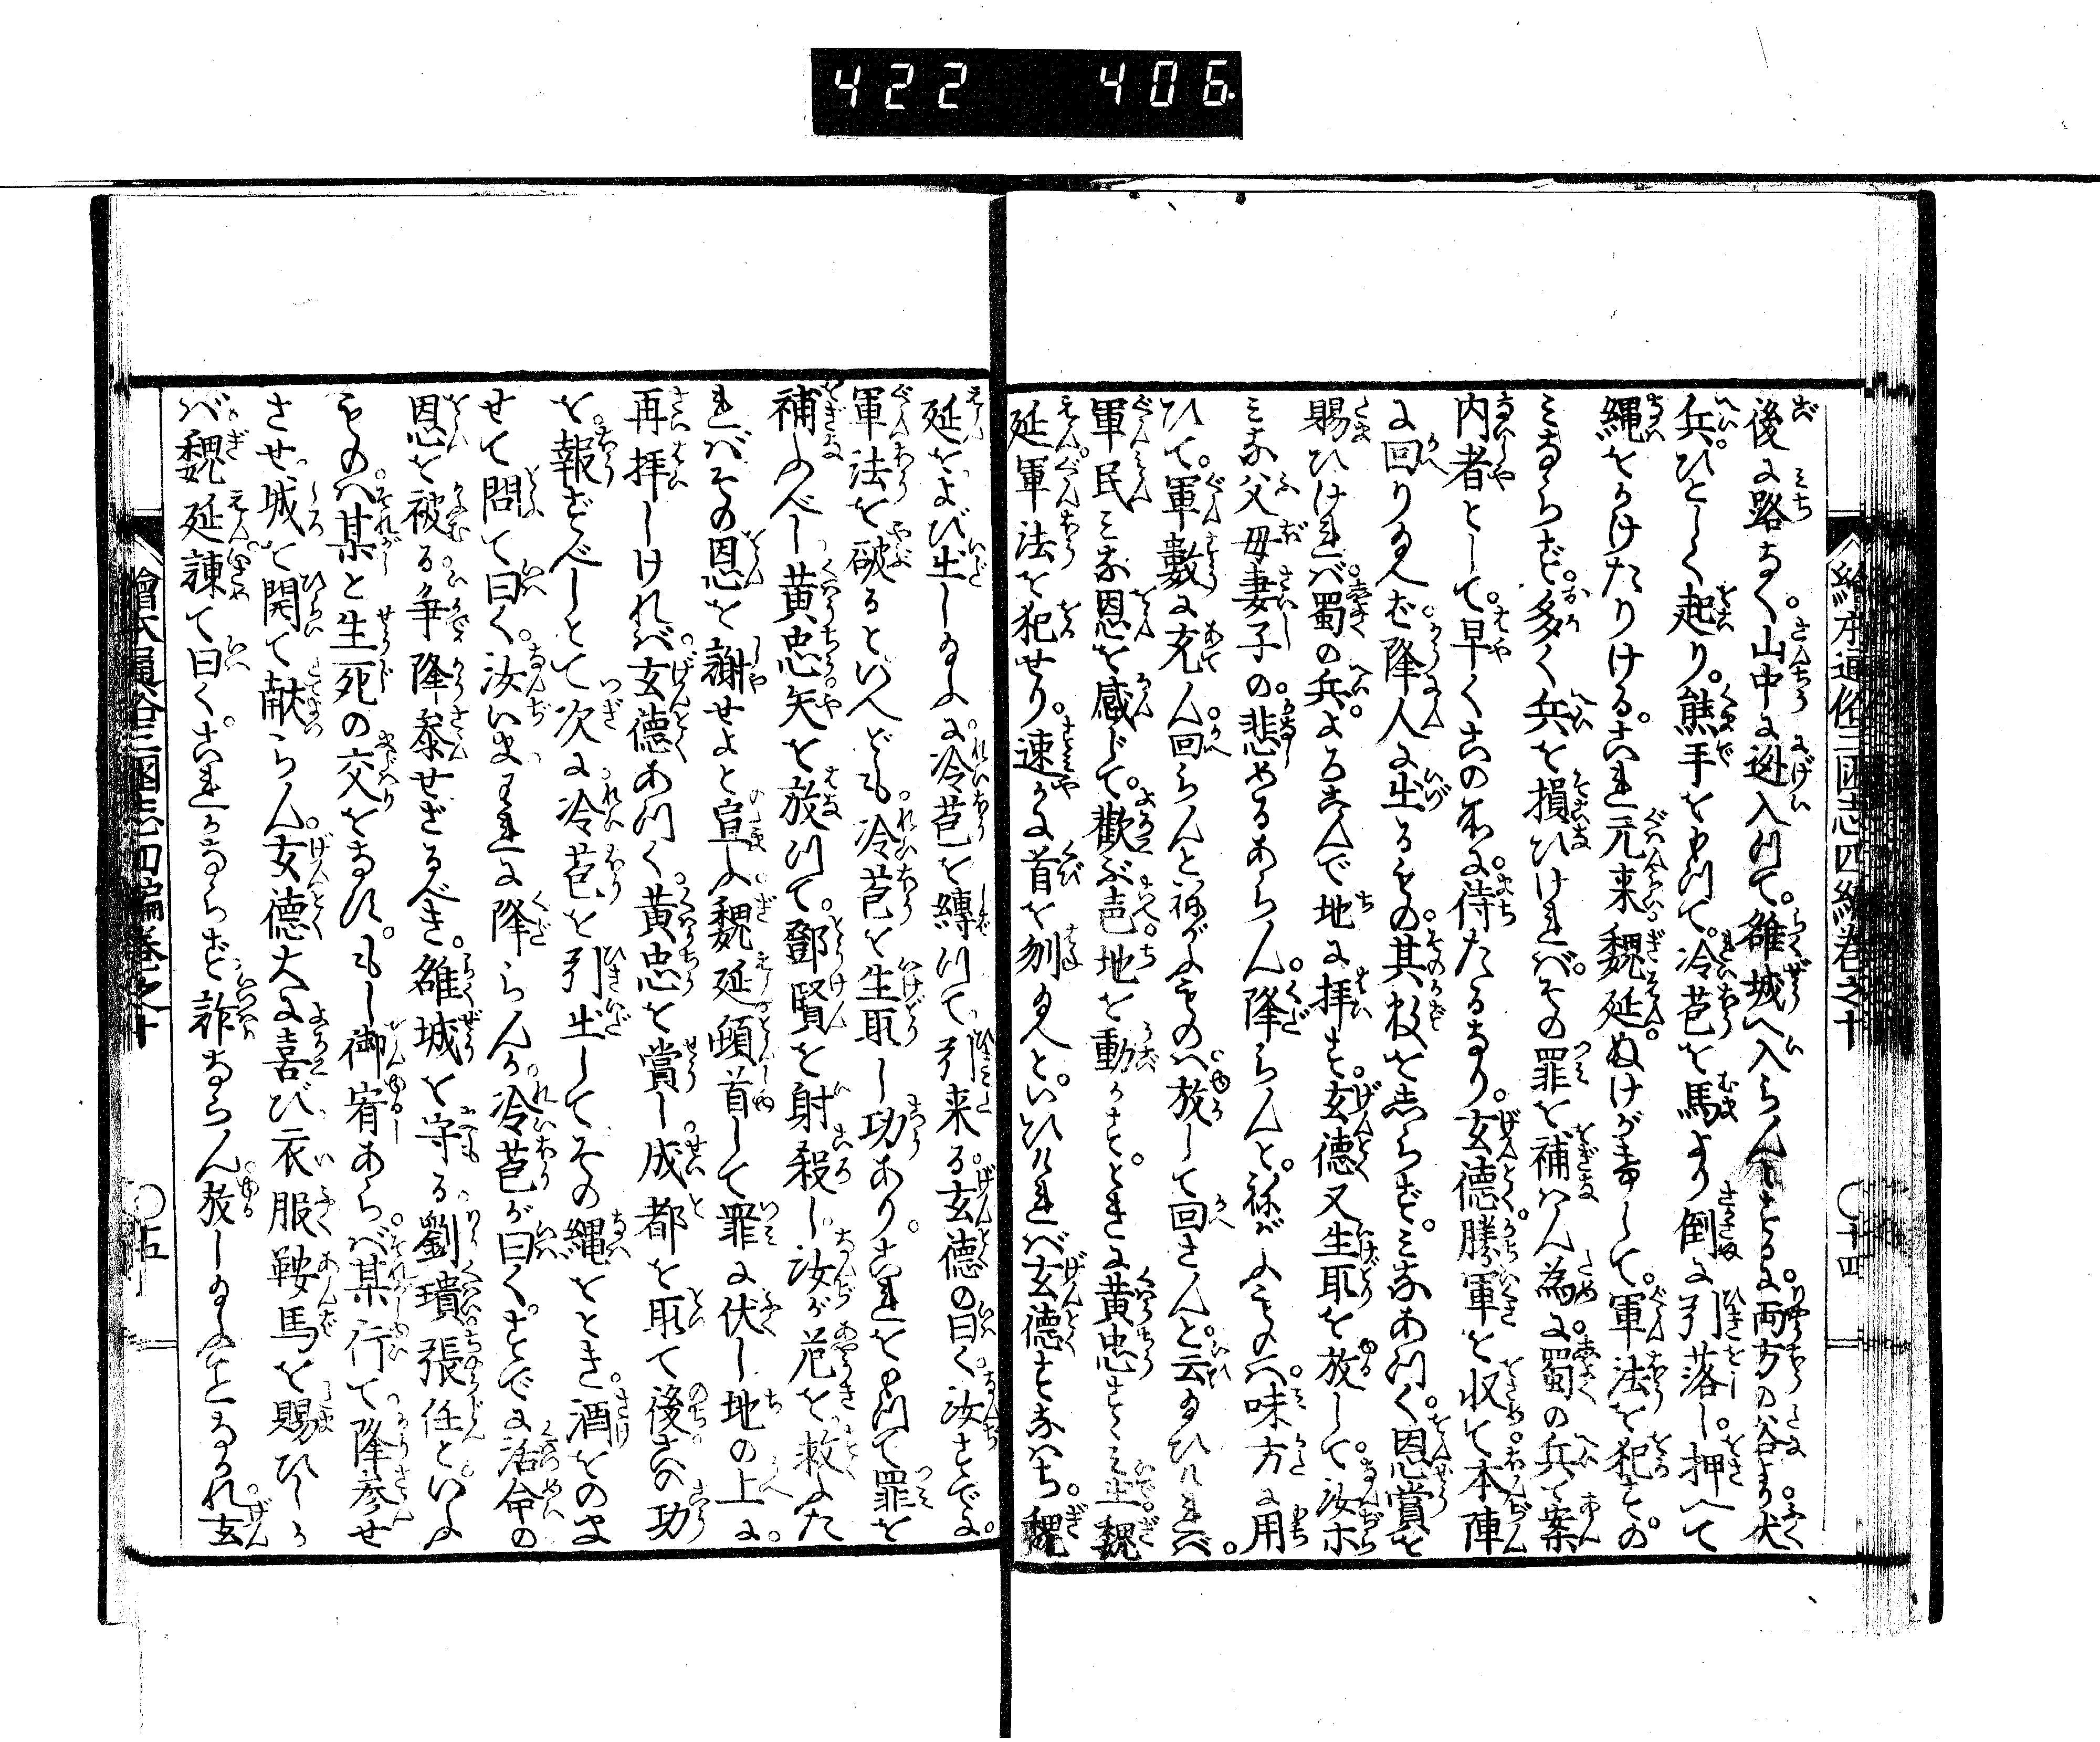 422 406
繪本通俗三國志四編卷之十 〇十四
後に路なく。山中に迯入て。雒城へ入らんとするに。両方の谷より伏
兵。ひとしく起り。熊手をもつて。冷苞を馬より倒に引落し。押へて
縄をかけたりける。これ元来魏延。ぬけがけして。軍法を犯すの
みならず。多く兵を損ひければ。その罪を補はん為に。蜀の兵を案
内者として。早くこの所に。待たるなり。玄徳。勝軍を収て。本陣
に回り給へば。降人に出るもの。其数をしらず。みなあつく。恩賞を
賜ひければ。蜀の兵。よろこんで地に拝す。玄徳又生取を放して。汝ホ
みな父母妻子の。悲めるあらん。降らんと。願ふものハ。味方に用
ひて。軍數に充ん。回らんと願ふものハ。放して回さんと。云給ひければ。
軍民みな恩を感じて。歓ぶ声。地を動かす。ときに黄忠すゝみ出。魏
延。軍法を犯せり。速かに首を刎給へと。いひければ玄徳すなはち。魏
延をよび出し給ふに。冷苞を縛りて。引来る。玄徳の曰く。汝すでに。
軍法を破るといへども。冷苞を生取し功あり。これをもつて罪を
補ふべし。黄忠矢を放つて。鄧賢を射殺し。汝が危を救ふた
ればその恩を謝せよと宣ふ。魏延頓首して罪に伏し地の上に。
再拝しければ。玄徳あつく。黄忠を賞し。成都を取て後。この功
を報ずべしとて。次に冷苞を引出してその縄をとき。酒をのま
せて問て曰く。汝いまわれに降らんか。冷苞が曰く。すでに活命の
恩を被る。争か降参せざるべき。雒城を守る劉璝張任といふ
ものハ。某と生死の交をなす。もし御宥あらば。某行て降参せ
させ。城を開て献らん。玄徳大に喜び。衣服鞍馬を賜ひしか
バ魏延諫て曰く。これかならず詐ならん。放し給ふことなかれ。玄
繪本通俗三國志四編卷之十 〇十五